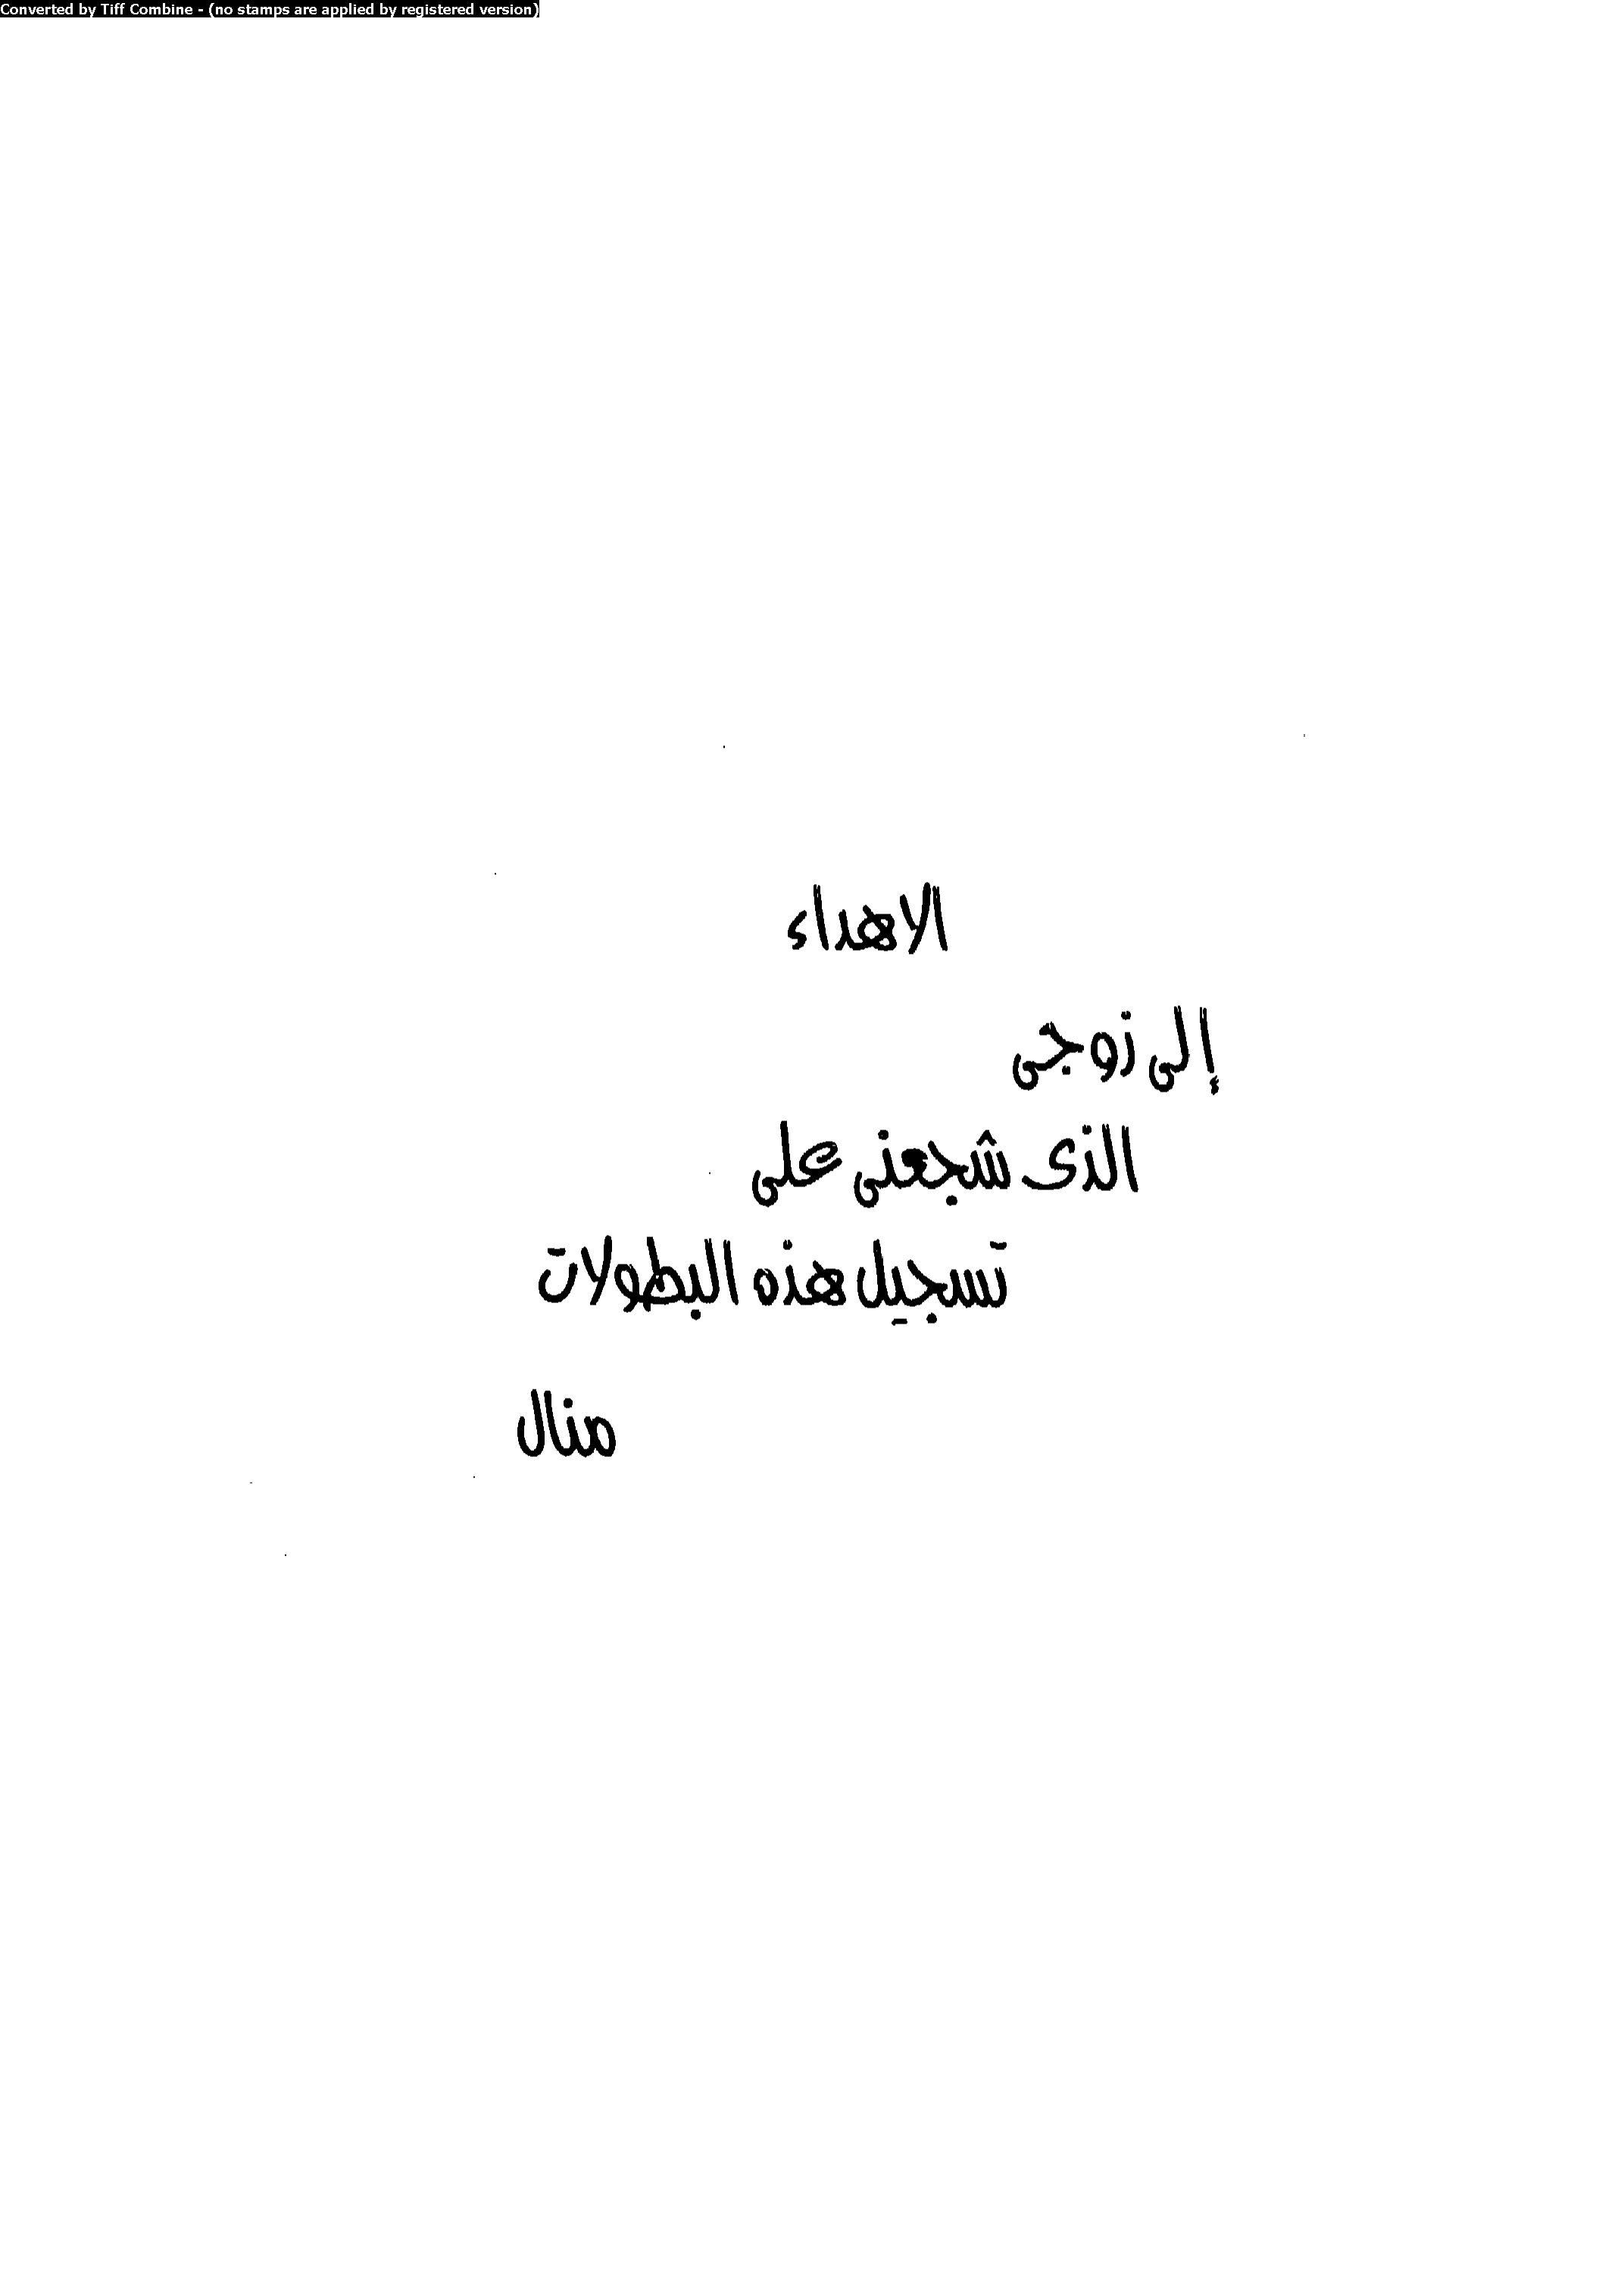 Converted by Tiff Combine - (no stamps are applied by registered version)
الاهداء
إلى زوجى
الذى شجعنى على
تسجيل هذه البطولات
منال